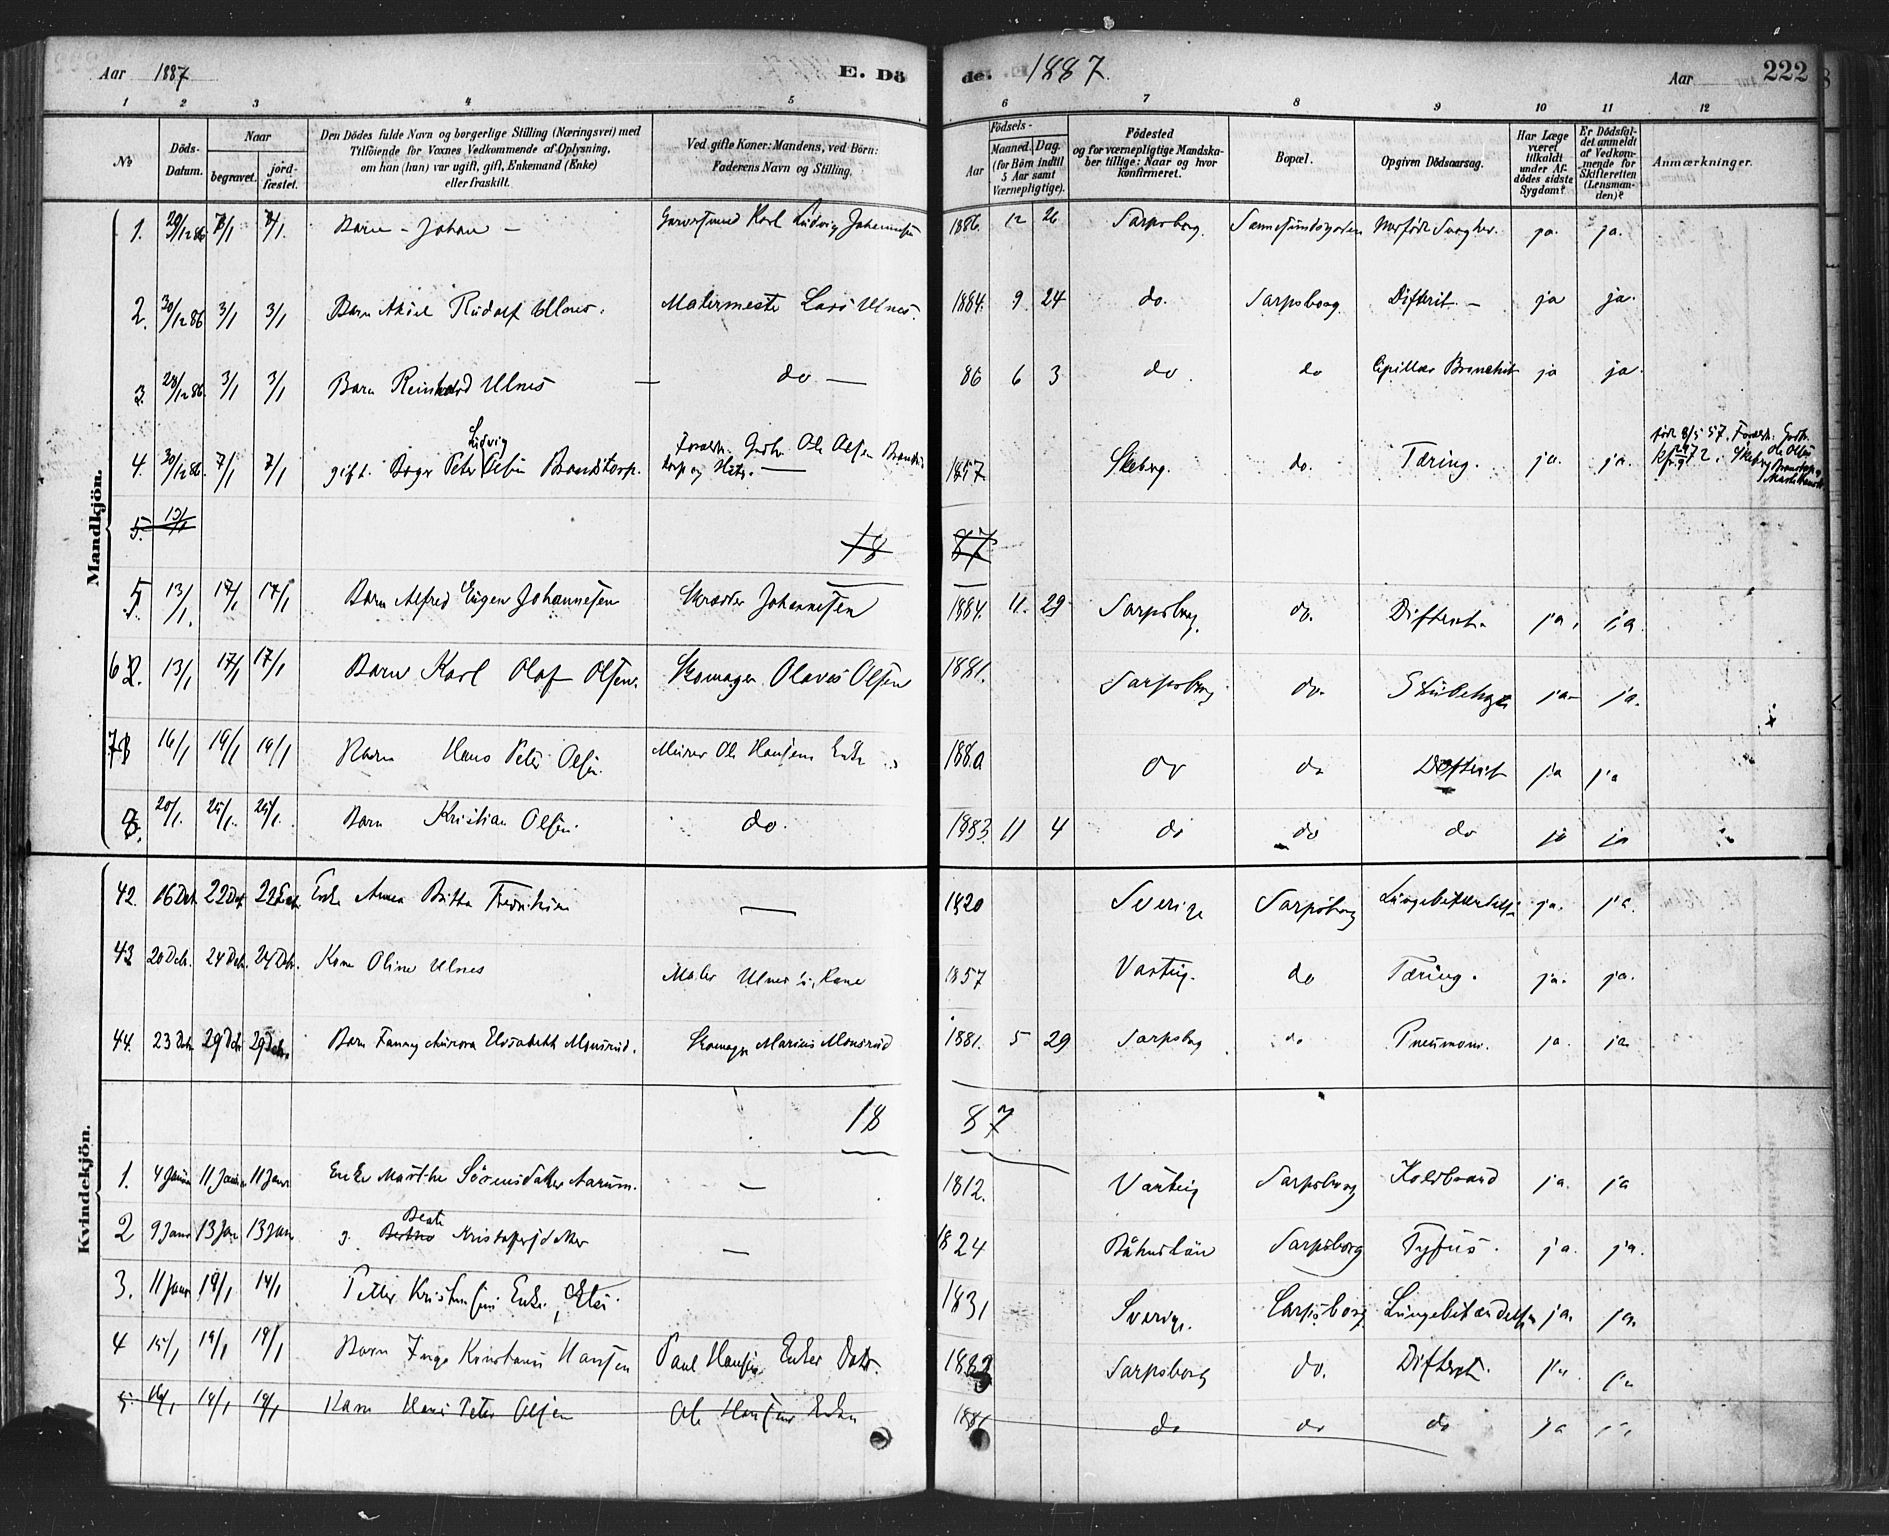 Aar 1887 E. Dö
de. 1887. Aar 222
1 2 3 4 5 6 7 8 9 10 11 12
No
Döds-Datum.
Naar begravet. jordfæstet.
Den Dödes fulde Navn og borgerlige Stilling (Næringsvei) med Tilföiende for Voxnes Vedkommende af Oplysning, om han (hun) var ugift, gift, Enkemand (Enke) eller fraskilt.
Ved gifte Koner: Mandens, ved Börn: Faderens Navn og Stilling.
Födsels- Aar Maaned. Dag. (for Börn indtil 5 Aar samt Værnepligtige).
Födested og for værnepligtige Mandskaber tillige: Naar og hvor konfirmeret.
Bopæl.
Opgiven Dödsaarsag.
Har Læge været tilkaldt under Afdödes sidste Sygdom?
Er Dödsfaldet anmeldt af Vedkommende for Skifteretten (Lensmanden)?
Anmærkninger.
Mandkjön.
1. 29/12 86 Barn - Johan - Karl Ludvig Johannesen 1886. 12 26 Sarpsborg. ja. ja.
2. 30/12 86 3/1 3/1 Barn Rudolf Ulnes. Malermester Lars Ulnes. 1884. 9 24 do. Sarpsborg. Difterit. - ja ja.
3. 28/12 86. 3/1 3/1 Barn Reinhard Ulnes — do — 86 6 3 do. do Bronchit ja ja.
4. 30/12 86. 7/1 7/1 gift. Peter Ludvig Olsen Brandstorp. Ole Olsen 1857 Skeberg. do. Tæring. ja. ja. født 8/5 57.
5. 13/1
18 87
5 13/1. 17/1 17/1 Barn Alfred Eugen Johannesen Skrædder Johannesen 1884. 11. 29 Sarpsborg. do. Difterit. ja. ja.
6 13/1 17/1 17/1 Barn Karl Olaf Olsen. Skomager Olaves Olsen 1881. Sarpsborg do. ja- ja.
7 16/1 19/1 19/1 Barn Hans Peter Olsen. Murer Ole Hansens Enke 1880 do do Difterit ja ja
8. 20/1. 25/1. 25/1. Barn Kristian Olsen. do. 1883. 11 4 do do do ja ja
Kvindekjön.
42. 16 Dcb. 22 Dcb. 22 Dcb. Enke Anna Britta 1820 Sverige Sarpsborg Lungebetændelse ja. ja.
43 20 Dcb. 24 Dcb. 24 Dcb. Kone Oline Ulnes Maler Ulnes's Kone 1857 Varteig. do Tæring. ja. ja.
44. 23 Dcb 29 Dcb 29 Dcb. Barn Fanny Aurora Elisabeth Monsrud. Skomager Marius Monsrud 1881. 5 29 Sarpsborg do Pneumoni. ja. ja
18 87
1. 4 Januar 11 Januar 11 Janr Enke Marthe Sörensdatter Aarum. — 1812. Varteig Sarpsborg Koldbrand ja. ja
2 9 Janr 13 Jan 13 Jan g. Beate Kristofersdatter — 1824 Båhuslän Sarpsborg Tyfus. ja. ja.
3. 11 Janr 14/1 Petter Kristensens Enke, 1831 Sverige. Sarpsborg Lungebetændelse ja. ja.
4 15/1 19/1 19/1 Barn Inga Konstanse Hansen Paul Hansens Enkes Datr. Sarpsborg do. Difterit. ja. ja
5. 16/1 19/1 19/1 Barn Hans Peter Olsen Ole Hansens Enke do do do ja